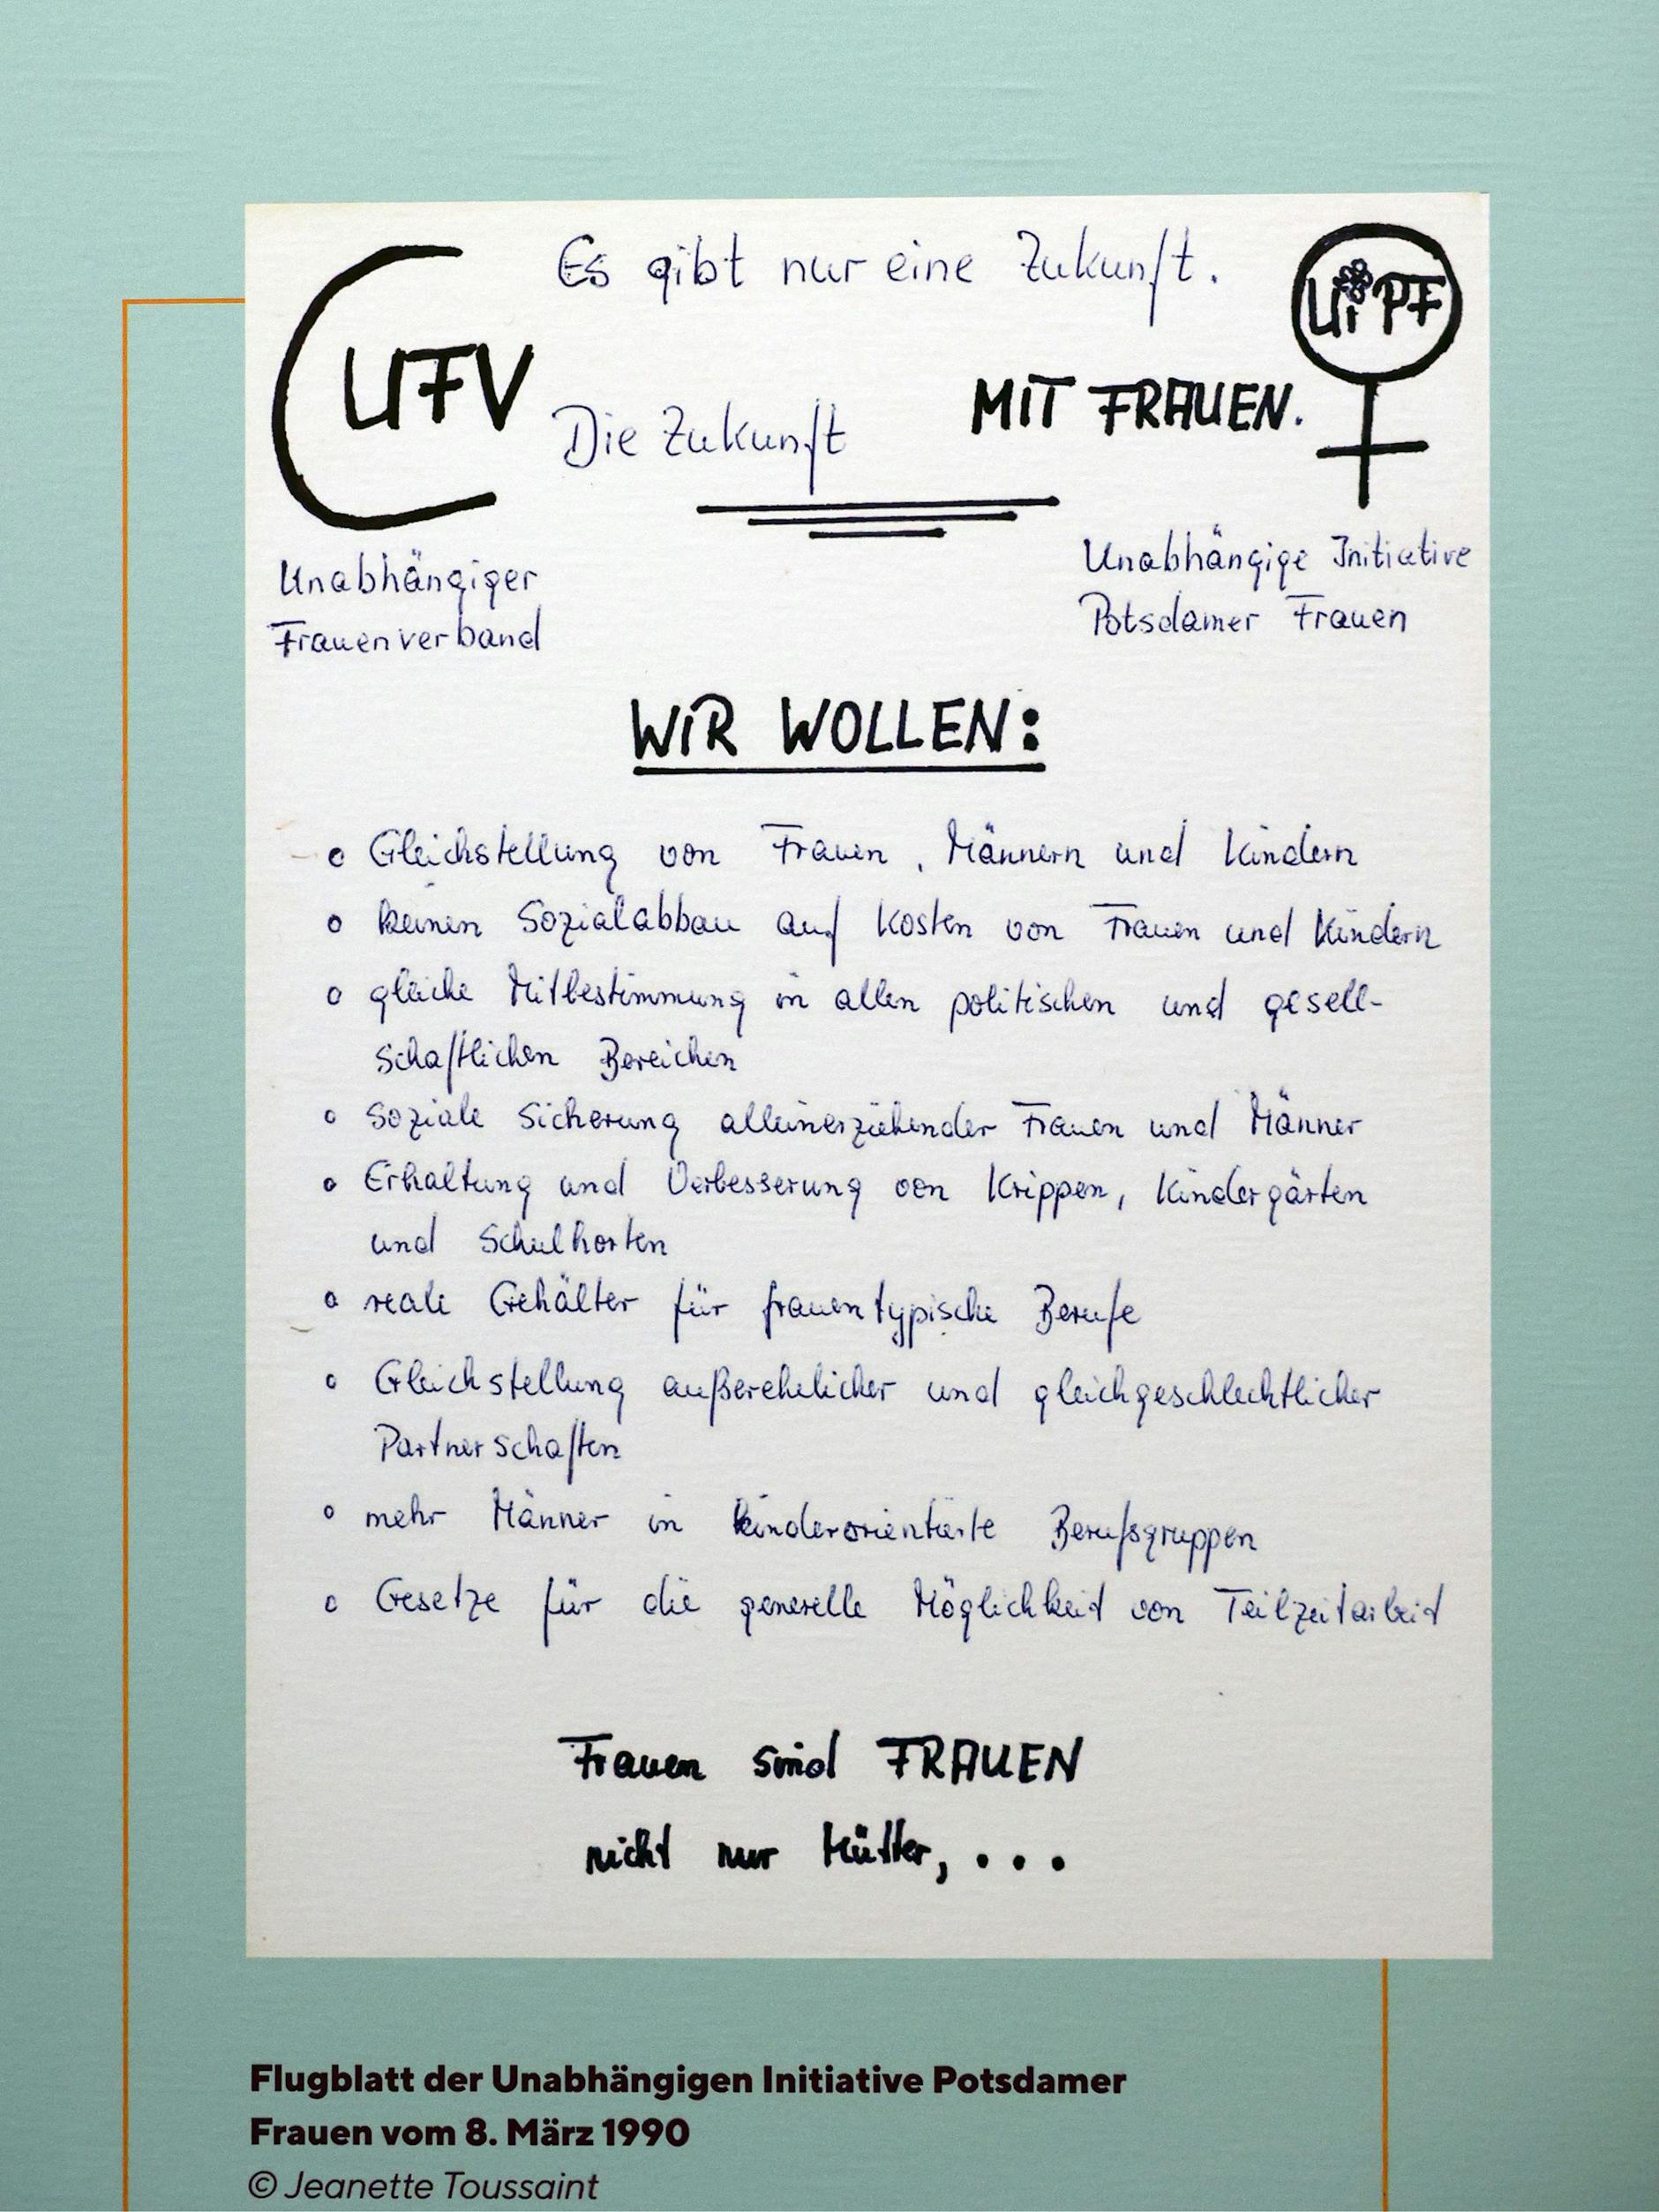 Es gibt nur eine Zukunft.
UFV
UiPF
Die Zukunft MIT FRAUEN.
Unabhängiger
Frauenverband
Unabhängige Initiative
Potsdamer Frauen
WIR WOLLEN:
o Gleichstellung von Frauen, Männern und Kindern
o keinen Sozialabbau auf Kosten von Frauen und Kindern
o gleiche Mitbestimmung in allen politischen und gesell-
schaftlichen Bereichen
o Soziale Sicherung alleinerziehender Frauen und Männer
o Erhaltung und Verbesserung von Krippen, Kindergärten
und Schulhorten
o reale Gehälter für frauentypische Berufe
o Gleichstellung außerehelicher und gleichgeschlechtlicher
Partnerschaften
o mehr Männer in kinderorientierte Berufsgruppen
o Gesetze für die generelle Möglichkeit von Teilzeitarbeit
Frauen sind FRAUEN
nicht nur Mütter, ...
Flugblatt der Unabhängigen Initiative Potsdamer
Frauen vom 8. März 1990
© Jeanette Toussaint